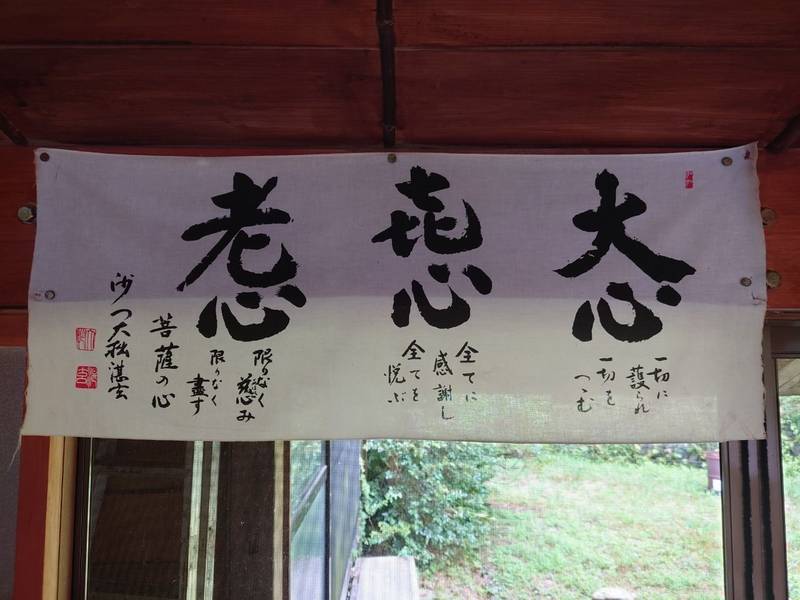 大心
一切に
護られ
一切を
つゝむ
㐂心
全てに
感謝し
全てを
悦ぶ
老心
限りなく
慈み
限りなく
盡す
菩薩の心